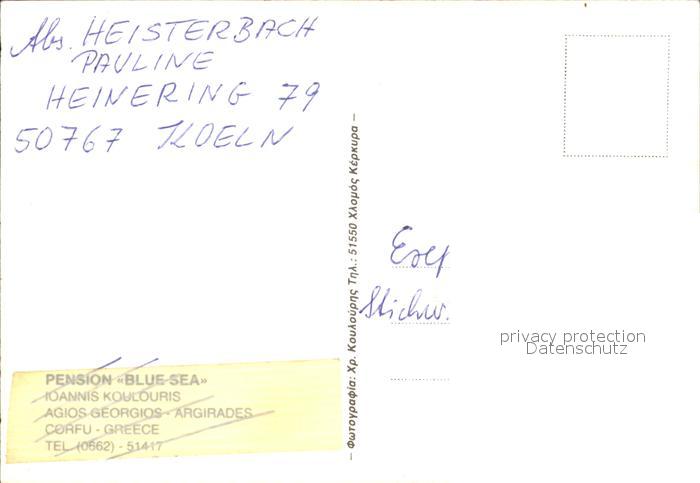 Abs. HEISTERBACH
PAULINE
HEINERING 79
50767 KOELN
– Φωτογραφία: Χρ. Κουλούρης Τηλ.: 51550 Χλομός Κέρκυρα –
Stichw.
privacy protection
Datenschutz
PENSION «BLUE SEA»
IOANNIS KOULOURIS
AGIOS GEORGIOS - ARGIRADES
CORFU - GREECE
TEL. (0662) - 51417